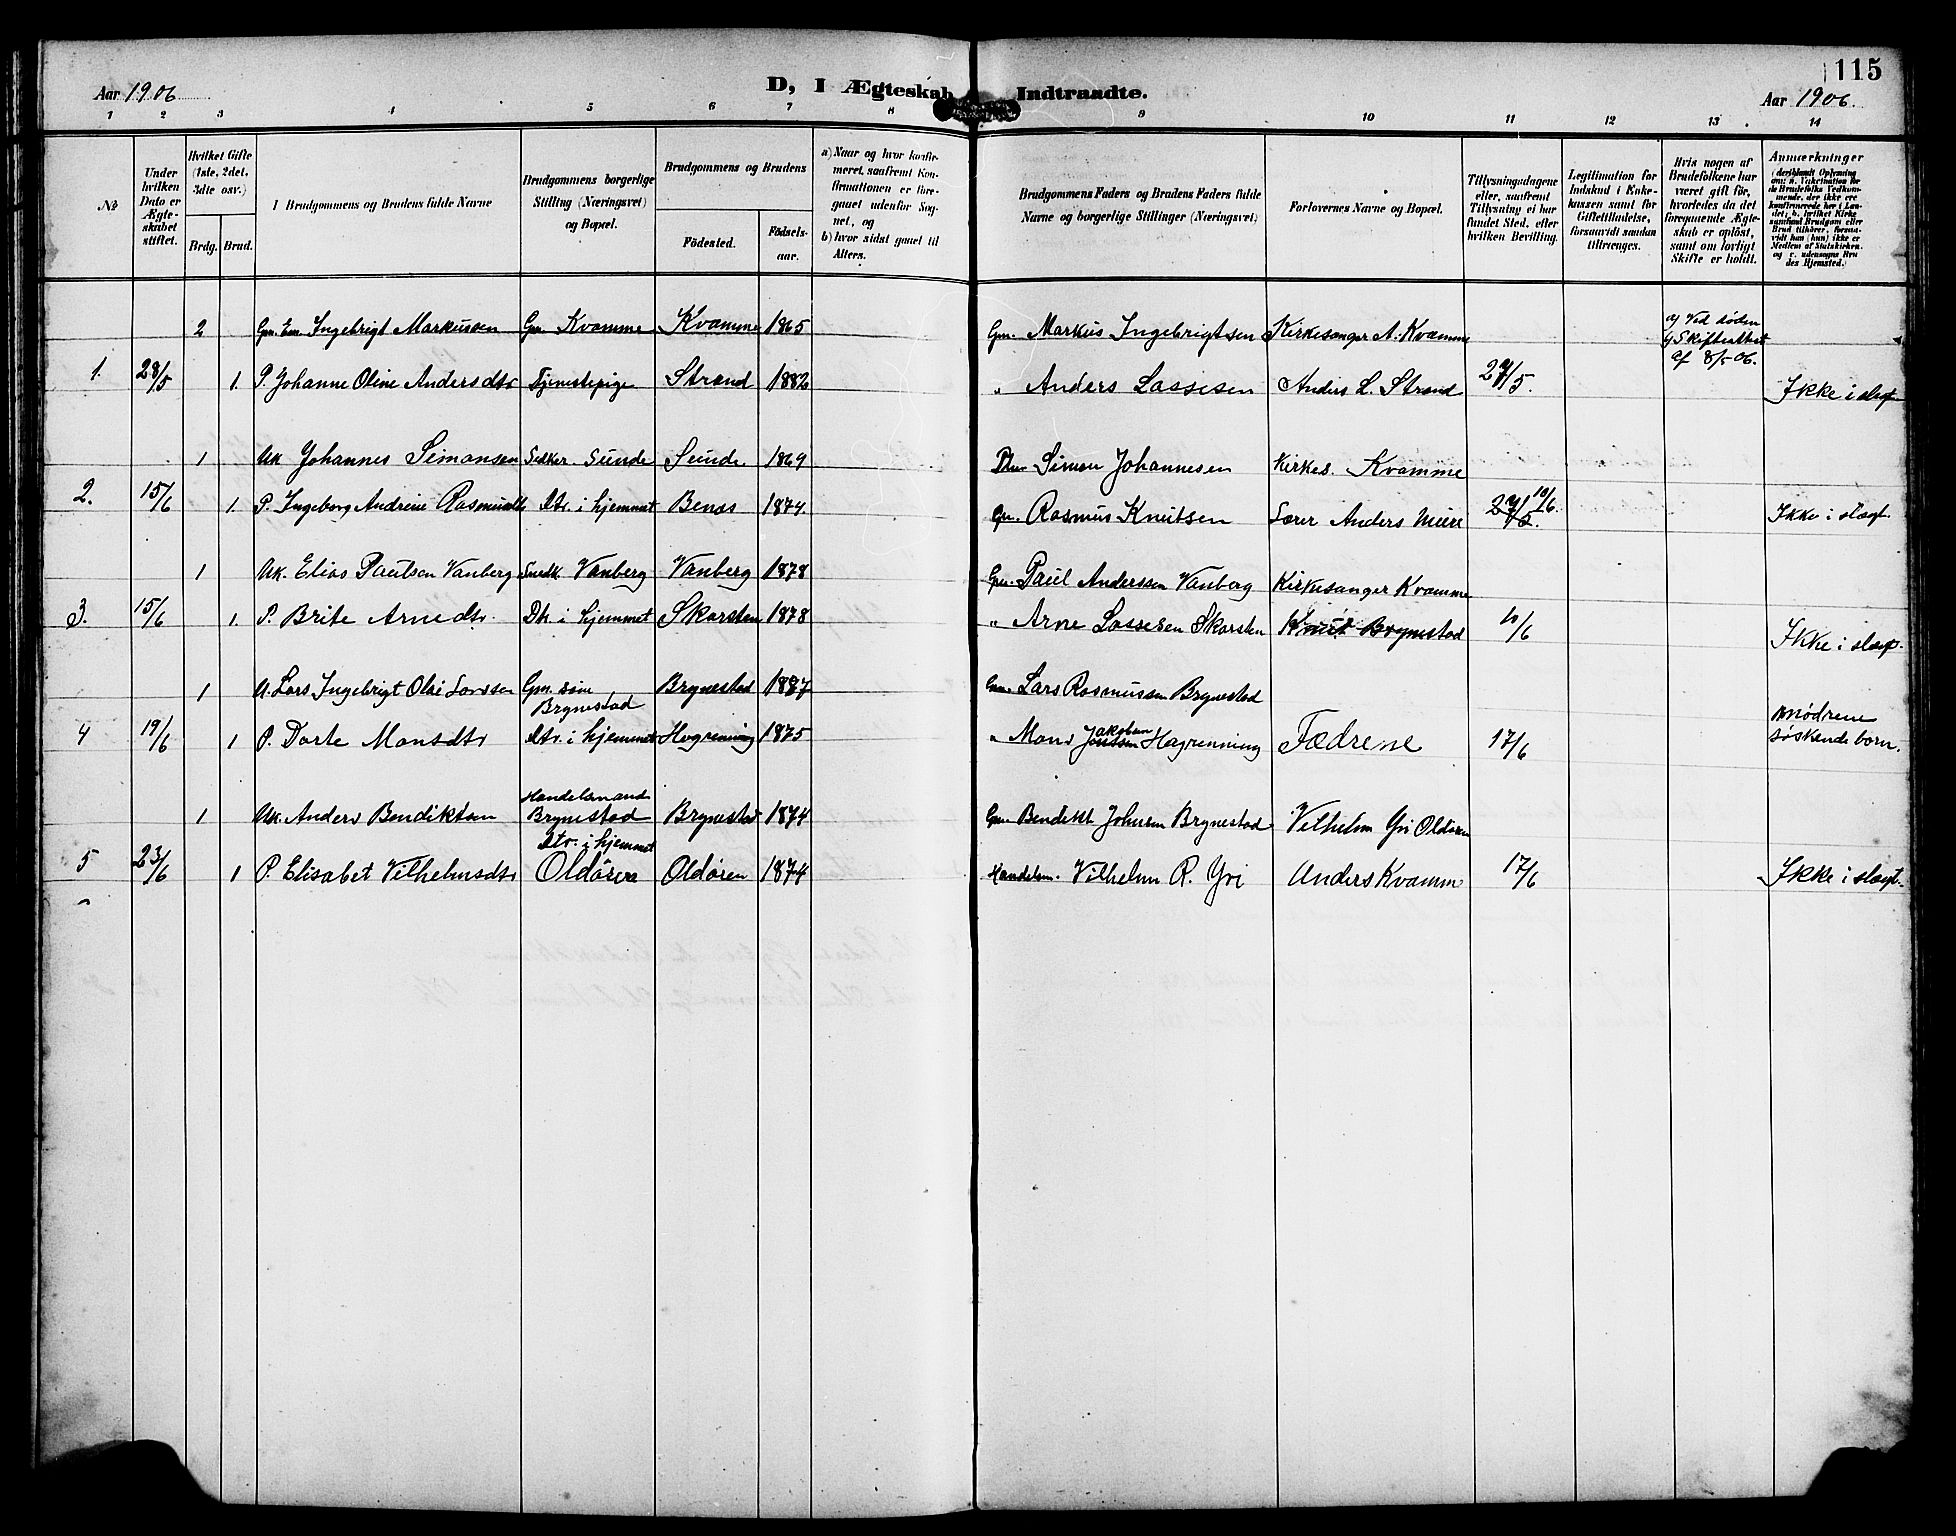 115
Aar 1906
D, I Ægteskab Indtraadte.
Aar 1906.
1 2 3 4 5 6 7 8 9 10 11 12 13 14
№
Under hvilken Dato er Ægteskabet stiftet.
Hvilket Gifte (1ste, 2det, 3dte osv.)
Brdg. Brud.
Brudgommens og Brudens fulde Navne
Brudgommens borgerlige Stilling (Næringsvei) og Bopæl.
Brudgommens og Brudens
Fødested.
Fødselsaar.
a) Naar og hvor konfirmeret, saafremt Konfirmationen er foregaaet udenfor Sognet, og
b) hvor sidst gaaet til Alters.
Brudgommens Faders og Brudens Faders fulde Navne og borgerlige Stillinger (Næringsvei)
Forlovernes Navne og Bopæl.
Tillysningsdagene eller, saafremt Tillysning ei har fundet Sted, efter hvilken Bevilling.
Legitimation for Indskud i Enkekassen samt for Giftetilladelse, forsaavidt saadan tiltrænges.
Hvis nogen af Brudefolkene har været gift før, hvorledes da det foregaaende Ægteskab er opløst, samt om lovligt Skifte er holdt.
Anmærkninger
2 Gm. Em. Ingebrigt Markussen Gm. Kvamme Kvamme 1865 Gm. Markus Ingebrigtsen Kirkesanger A. Kvamme a) Ved døden b) Skifteattest af 8/5-06.
1. 28/5 1. P. Johanne Oline Andersdtr Tjenestepige Strand 1882 " Anders Lassesen Anders L. Strand 27/5. Ikke i slegt
1 Uk Johannes Simonsen Sunde Sunde 1869 Simon Johannesen Kirkes. Kvamme
2. 15/6 1. P. Ingeborg Andrine Rasmusdtr Dtr. i hjemmet Benos 1874 Gm. Rasmus Knutsen Lærer Anders Muri 27/5. 10/6. Ikke i slægt.
1 Uk. Elias Paulsen Vanberg Snedk. Vanberg Vanberg 1878 Gm. Paul Anderssen Vanberg Kirkesanger Kvamme
3. 15/6 1. P. Brite Arnedtr. Dtr. i hjemmet Skarsten 1878 " Arne Lassesen Skarsten Brynestad 10/6 Ikke i slægt.
1 U. Lars Ingebrigt Olai Larssen Gm. søn Brynestad Brynestad 1877 Gm. Lars Rasmussen Brynestad
4 19/6 1 P. Dorte Monsdtr Dtr. i hjemmet Hogrenning 1875 " Mons Jakobsen Høgrenning Fædrene 17/6 Mødrene søskende barn.
1 Uk. Anders Bendiktsen Handelsmand Brynestad Brynestad 1874 Gm Bendikt Johnsen Brynestad Vilhelm Yri Oldøren
5 23/6 1 P. Elisabet Vilhelmsdtr Dtr. i hjemmet Oldøren Oldøren 1874 Handelsm. Vilhelm R. Yri Anders Kvamme 17/6 Ikke i slægt.